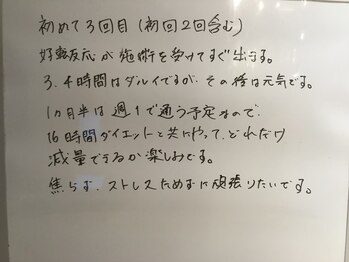 初めて3回目(初回2回含む)
好転反応が施術を受けてすぐ出ます。
3、4時間はダルイですが、その後は元気です。
1ヵ月半は週1で通う予定なので、
16時間ダイエットと共にやって、どれだけ
減量できるか楽しみです。
焦らず、ストレスためずに頑張りたいです。